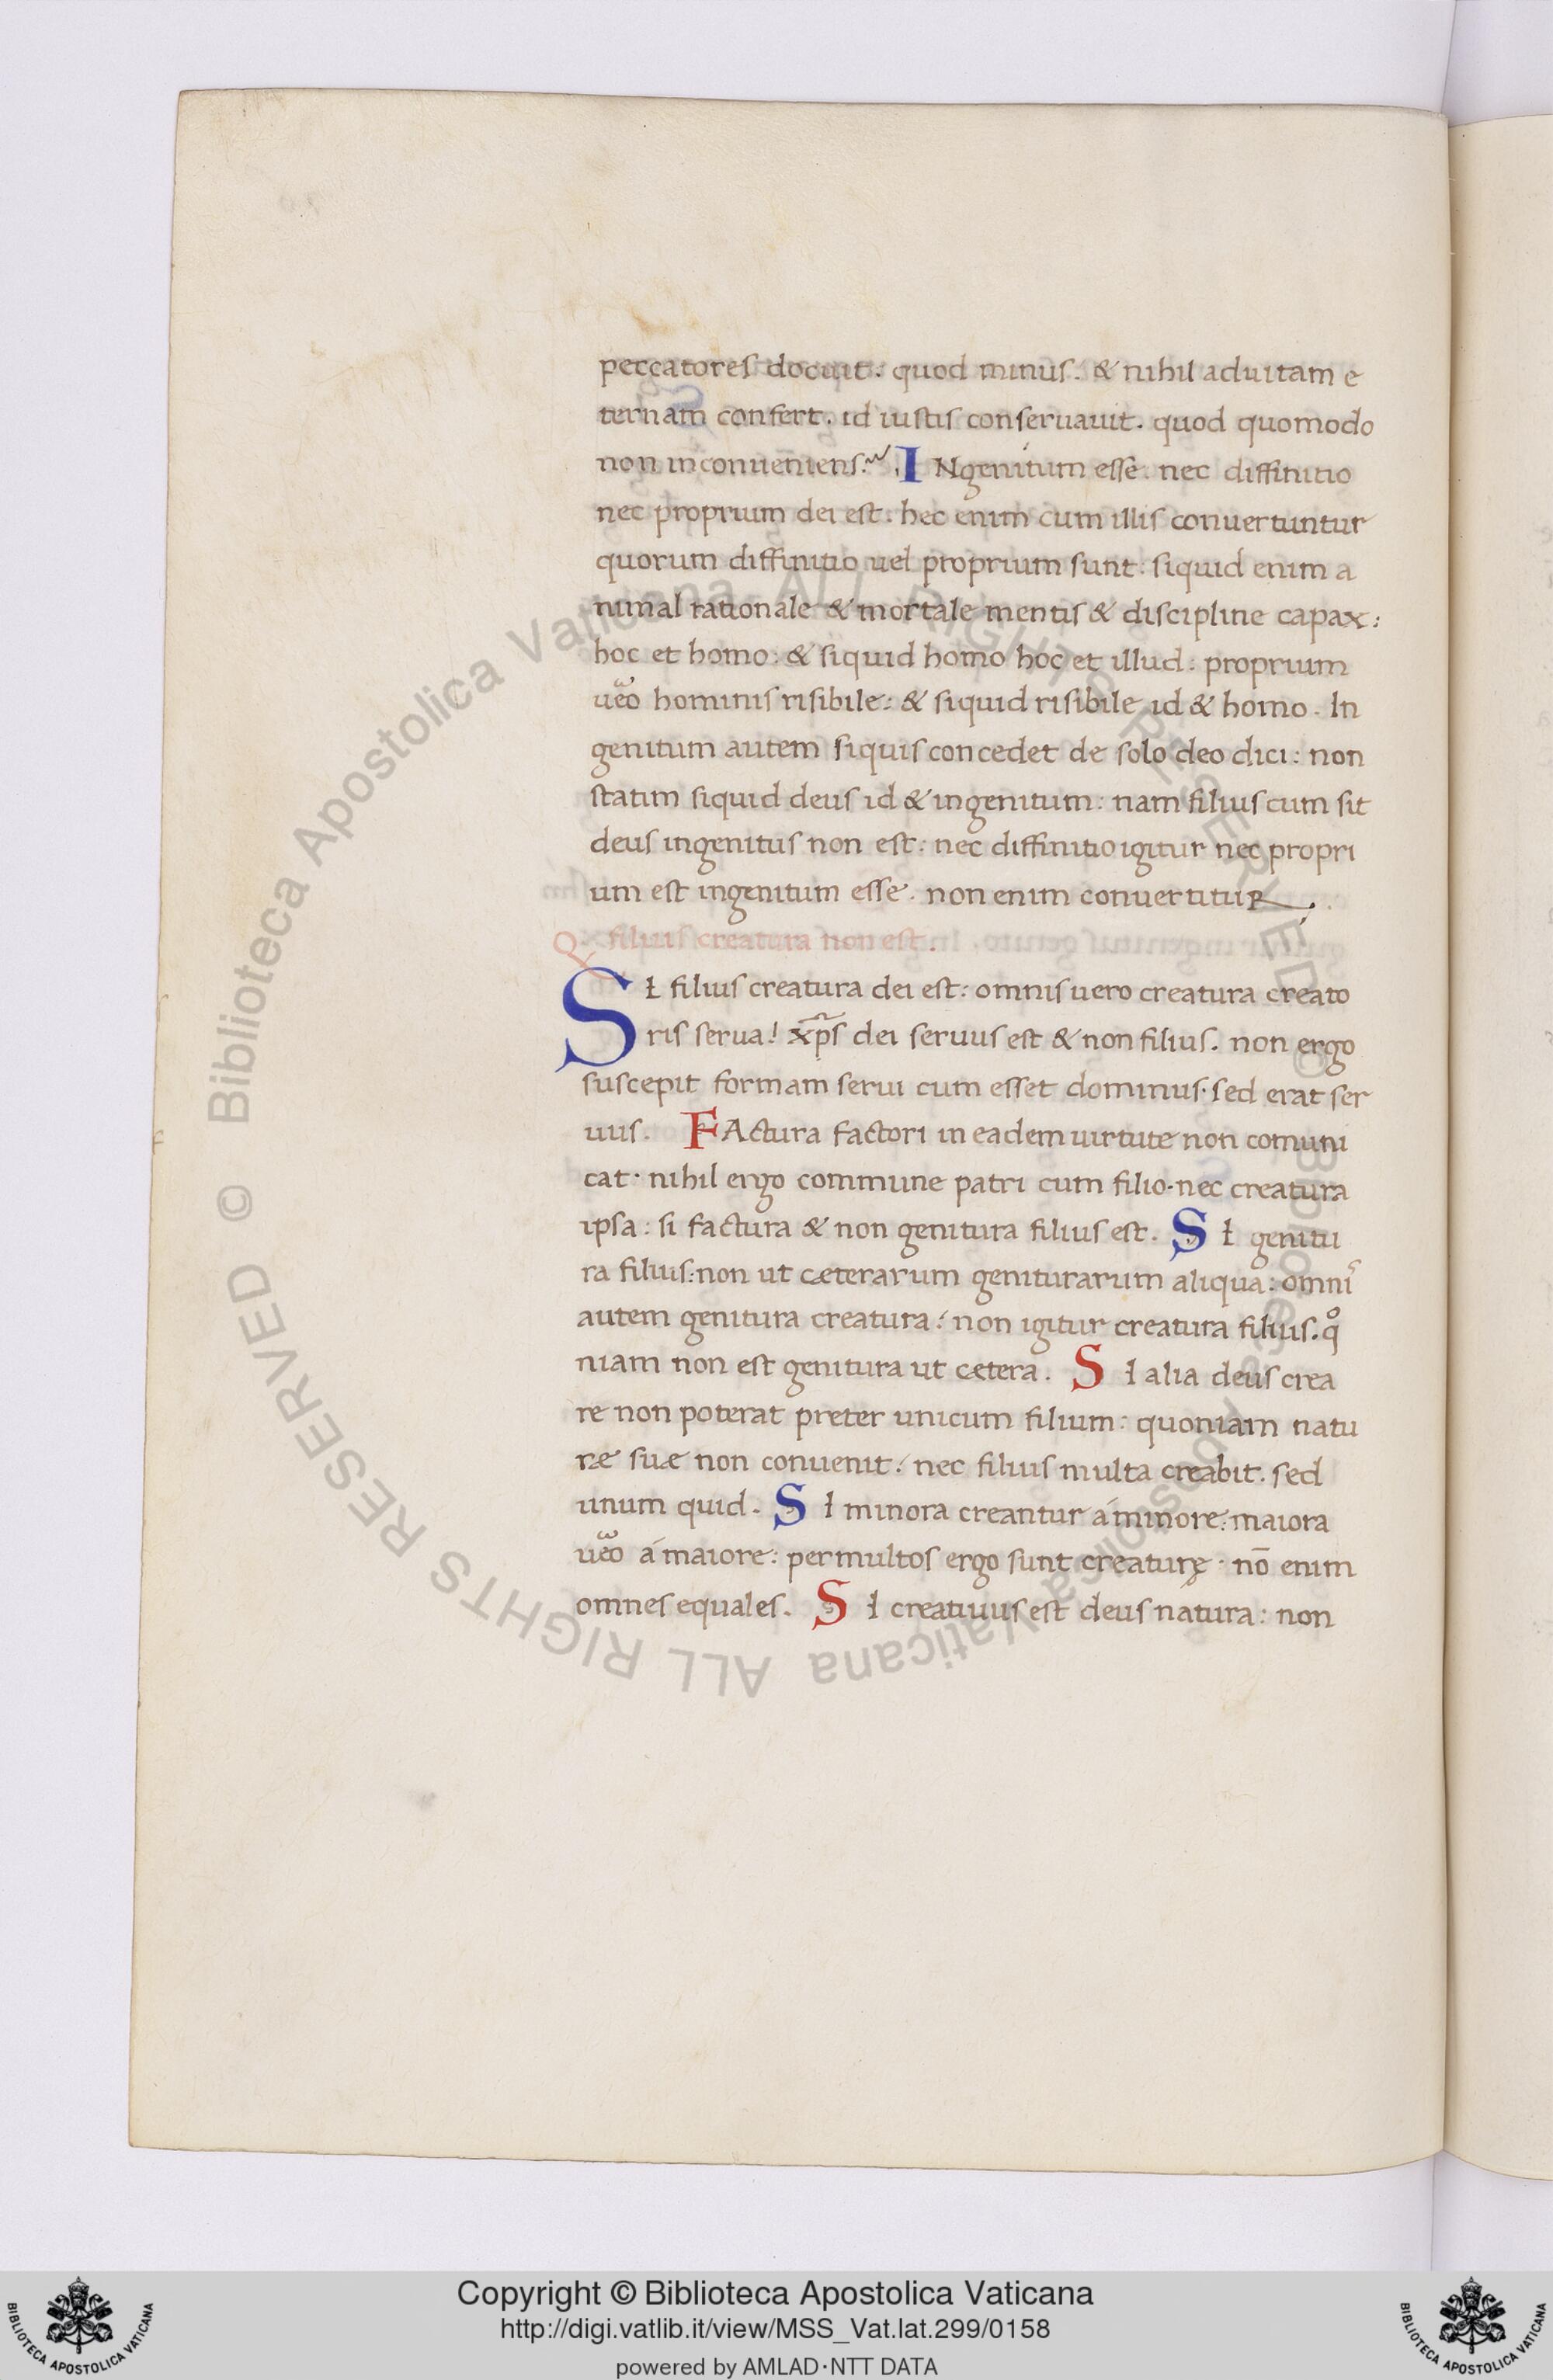 peccatores docuit: quod minus. & nihil ad uitam e
ternam confert. id iustis conseruauit. quod quomodo
non inconueniens. INgenitum esse: nec diffinitio
nec proprium dei est. hec enim cum illis conuertuntur
quorum diffinitio uel proprium sunt: siquid enim a
nimal rationale & mortale mentis & discipline capax:
hoc et homo: & siquid homo hoc et illud: proprium
uẽo hominis risibile: & siquid risibile id & homo. In
genitum autem siquis concedet de solo deo dici: non
statim siquid deus id & ingenitum: nam filius cum sit
deus ingenitus non est: nec diffinitio igitur nec propri
um est ingenitum esse. non enim conuertitur.
Q filius creatura non est.
SI filius creatura dei est: omnis uero creatura creato
ris serua! xp̃s dei seruus est & non filius. non ergo
suscepit formam serui cum esset dominus. sed erat ser
uus. FActura factori in eadem uirtute non comuni
cat. nihil ergo commune patri cum filio. nec creatura
ipsa: si factura & non genitura filius est. SI genitu
ra filius: non ut cæterarum geniturarum aliqua: omnĩ
autem genitura creatura: non igitur creatura filius. qͦ
niam non est genitura ut cætera. SI alia deus crea
re non poterat preter unicum filium: quoniam natu
ræ suæ non conuenit: nec filius multa creabit. sed
unum quid. SI minora creantur á minore: maiora
uẽo á maiore: permultos ergo sunt creaturę. nō enim
omnes equales. SI creatiuus est deus natura: non
© Biblioteca Apostolica Vaticana ALL RIGHTS RESERVED
© Biblioteca Apostolica Vaticana ALL RIGHTS RESERVED
Copyright © Biblioteca Apostolica Vaticana
http://digi.vatlib.it/view/MSS_Vat.lat.299/0158
powered by AMLAD·NTT DATA
BIBLIOTECA APOSTOLICA VATICANA
BIBLIOTECA APOSTOLICA VATICANA